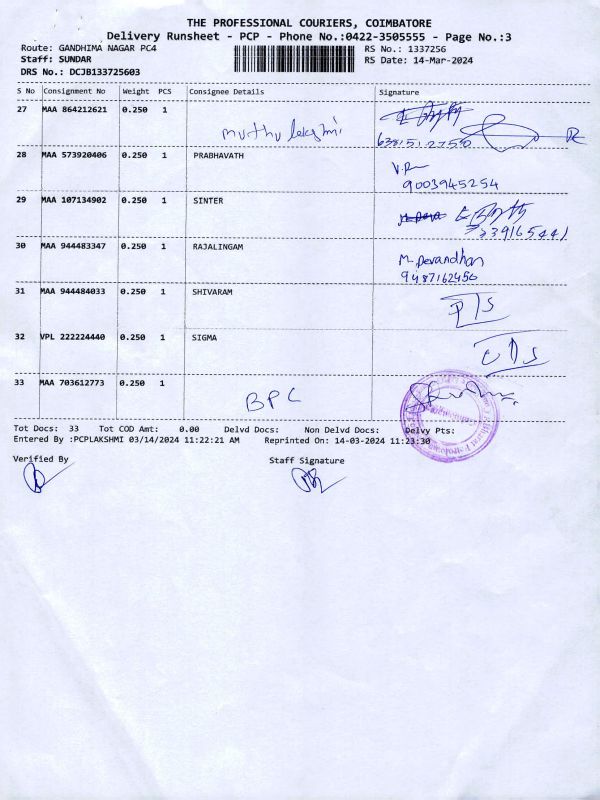 THE PROFESSIONAL COURIERS, COIMBATORE
Delivery Runsheet - PCP - Phone No.:0422-3505555 - Page No.:3
Route: GANDHIMA NAGAR PC4 RS No.: 1337256
Staff: SUNDAR RS Date: 14-Mar-2024
DRS No.: DCJB133725603
S No Consignment No Weight PCS Consignee Details Signature
27 MAA 864212621 0.250 1 muthu lakshmi
28 MAA 573920406 0.250 1 PRABHAVATH
9003945254
29 MAA 107134902 0.250 1 SINTER
30 MAA 944483347 0.250 1 RAJALINGAM M. Devandhan
9487162450
31 MAA 944484033 0.250 1 SHIVARAM
32 VPL 222224440 0.250 1 SIGMA
33 MAA 703612773 0.250 1 BPC
Tot Docs: 33 Tot COD Amt: 0.00 Delvd Docs: Non Delvd Docs: Delvy Pts:
Entered By :PCPLAKSHMI 03/14/2024 11:22:21 AM Reprinted On: 14-03-2024 11:23:30
Verified By Staff Signature